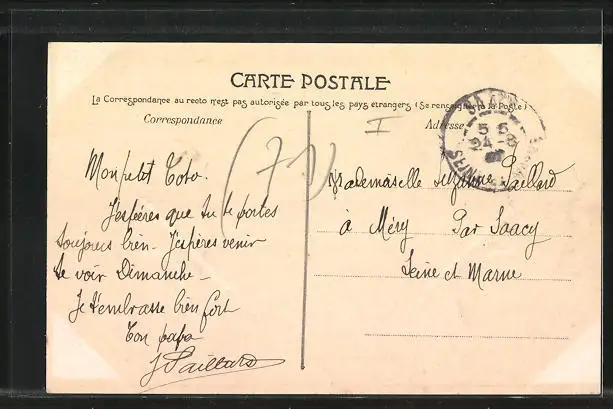 CARTE POSTALE
La Correspondance au recto n'est pas autorisée par tous les pays étrangers (Se renseigner à la Poste)
Correspondance
Adresse
I
(71)
Mon petit Toto.
J'espères que tu te portes
toujours bien - J'espères venir
te voir Dimanche -
Je t'embrasse bien fort
Ton papa
J Paillard
Mademoiselle Suzanne Paillard
à Méry Par Saacy
Seine et Marne
5 5
24 - 8
SEINE